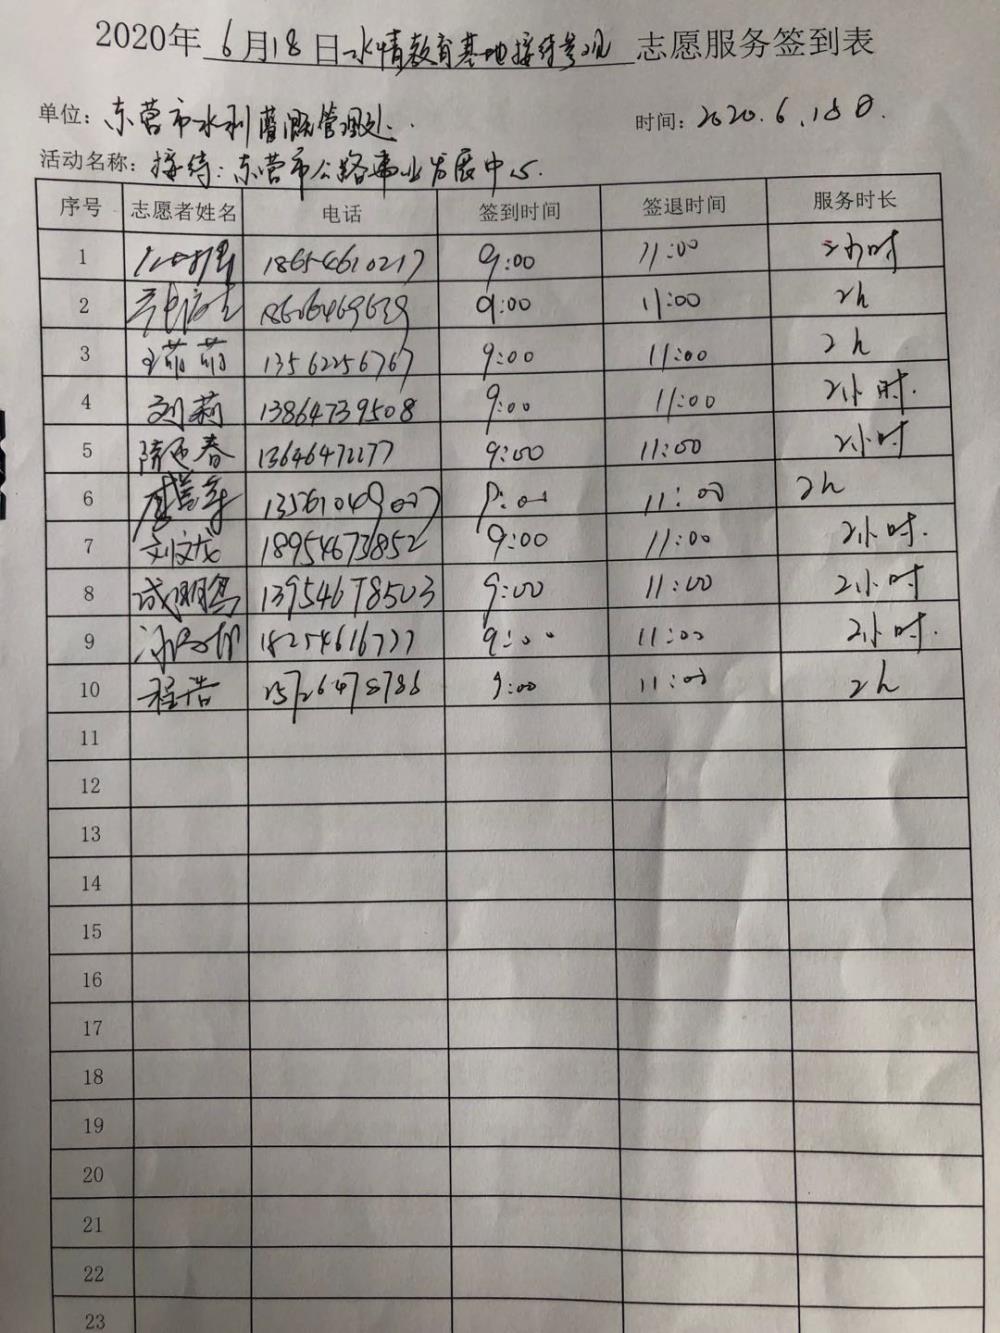 2020年 6月18日水情教育基地接待参观 志愿服务签到表
单位: 东营市水利灌溉管理处. 时间: 2020.6.18日.
活动名称: 接待:东营市公路事业发展中心.
序号 志愿者姓名 电话 签到时间 签退时间 服务时长
1 18654610217 9:00 11:00 2小时
2 9:00 11:00 2h
3 王萌萌 13562256767 9:00 11:00 2h
4 刘莉 13864739508 9:00 11:00 2小时.
5 隋迎春 13646472177 9:00 11:00 2小时
6 9:00 11:00 2h
7 刘文龙 18954673852 9:00 11:00 2小时.
8 成鹏 13954678503 9:00 11:00 2小时
9 18254616777 9:00 11:00 2小时.
10 程浩 15726478786 9:00 11:00 2h
11
12
13
14
15
16
17
18
19
20
21
22
23